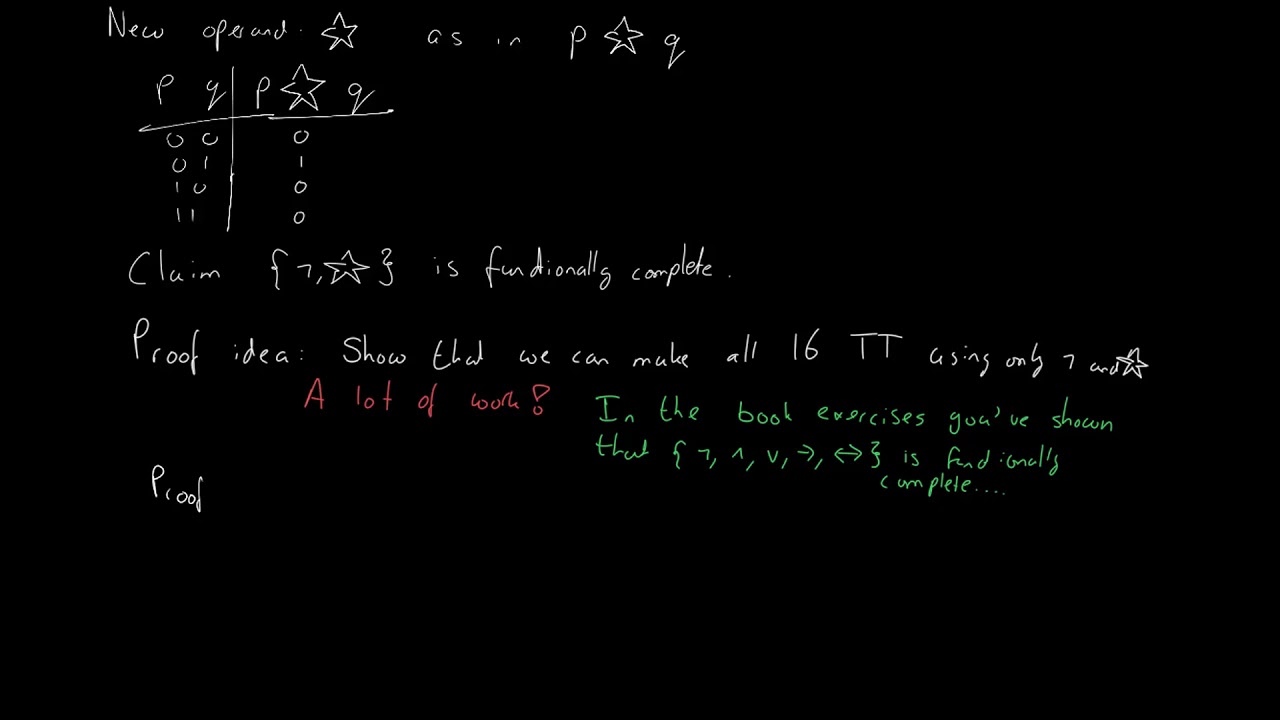 New operand. ☆ as in p ☆ q
p q p ☆ q
0 0 0
0 1 1
1 0 0
1 1 0
Claim {¬,☆} is functionally complete.
Proof idea: Show that we can make all 16 TT using only ¬ and ☆
A lot of work!
In the book exercises you've shown
that {¬, ∧, ∨, →, ↔} is functionally
complete....
Proof